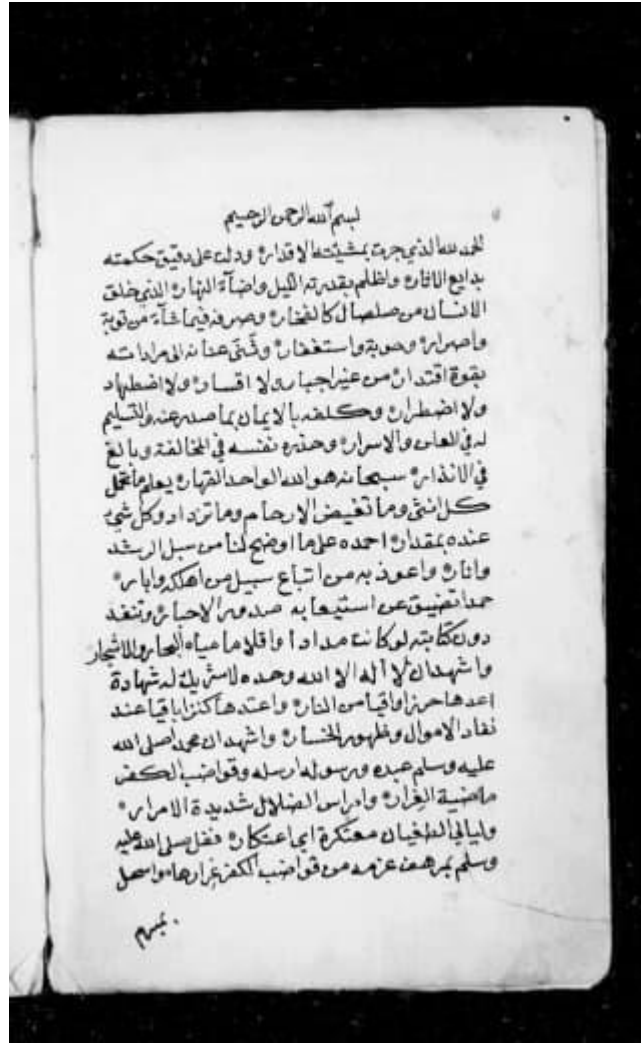 بسم الله الرحمن الرحيم
الحمد لله الذي جرت بمشيئته الاقدار ودلت على دقيق حكمته
بدايع الاثار واظلم بقدرته الليل واضآء النهار الذي خلق
الانسان من صلصال كالفخار وصرفه فيما شآء من توبة
واصرار وحوبة واستغفار وثنى عنانه الى مراداته
بقوة اقتدار من غير اجبار ولا اقسار ولا اضطهاد
ولا اضطرار وكلفه بالايمان بما صدر عنه والتسليم
له في العلن والاسرار وحذره نفسه في المخالفة وبالغ
في الانذار سبحانه هو الله الواحد القهار يعلم ما تحمل
كل انثى وما تغيض الارحام وما تزداد وكل شيء
عنده بمقدار احمده على ما اوضح لنا من سبل الرشد
وانار واعوذ به من اتباع سبيل من اهلكه وابار
حمدا تضيق عن استيعابه صدور الاحبار وتنفد
دون كتابته لو كانت مدادا واقلاما مياه البحار والاشجار
واشهد ان لا اله الا الله وحده لا شريك له شهادة
اعدها حرزا واقيا من النار واعتدها كنزا باقيا عند
نفاد الاموال وظهور الخسار واشهد ان محمدا صلى الله
عليه وسلم عبده ورسوله ارسله وقواضب الكفر
ماضية الغرار وامراس الضلال شديدة الامرار
وليالي الطغيان معتكرة اي اعتكار ففل صلى الله عليه
وسلم بمرهف عزمه من قواضب الكفر غرارها واسحل